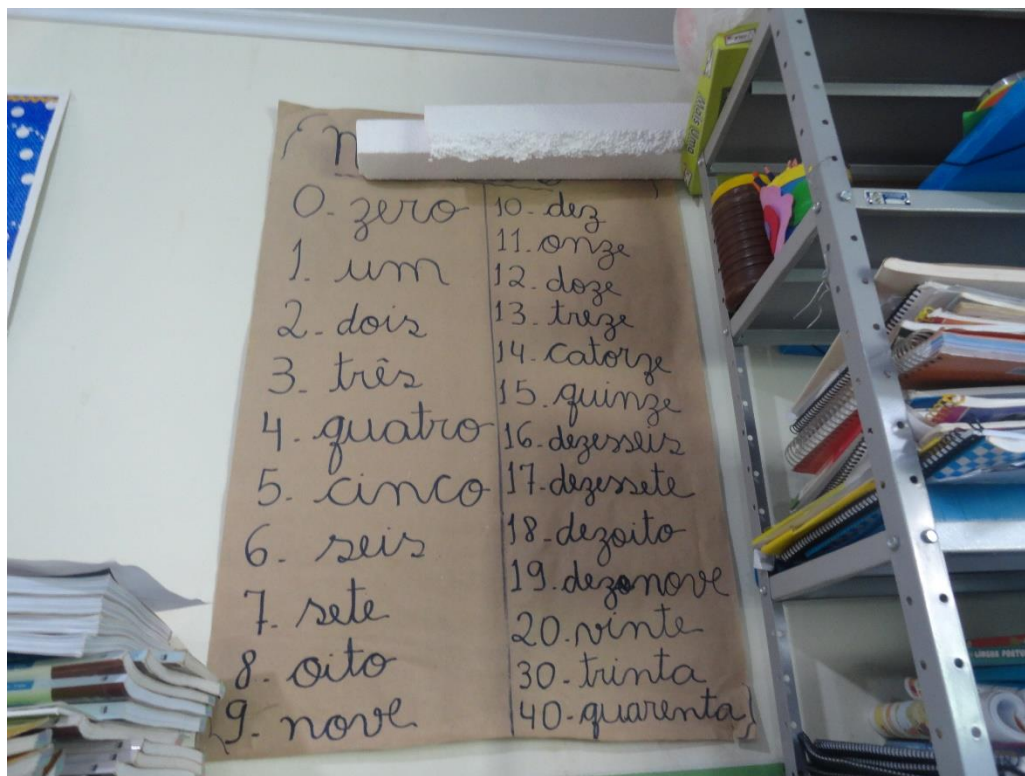 0. zero
1. um
2. dois
3. três
4. quatro
5. cinco
6. seis
7. sete
8. oito
9. nove
10. dez
11. onze
12. doze
13. treze
14. catorze
15. quinze
16. dezesseis
17. dezessete
18. dezoito
19. dezenove
20. vinte
30. trinta
40. quarenta